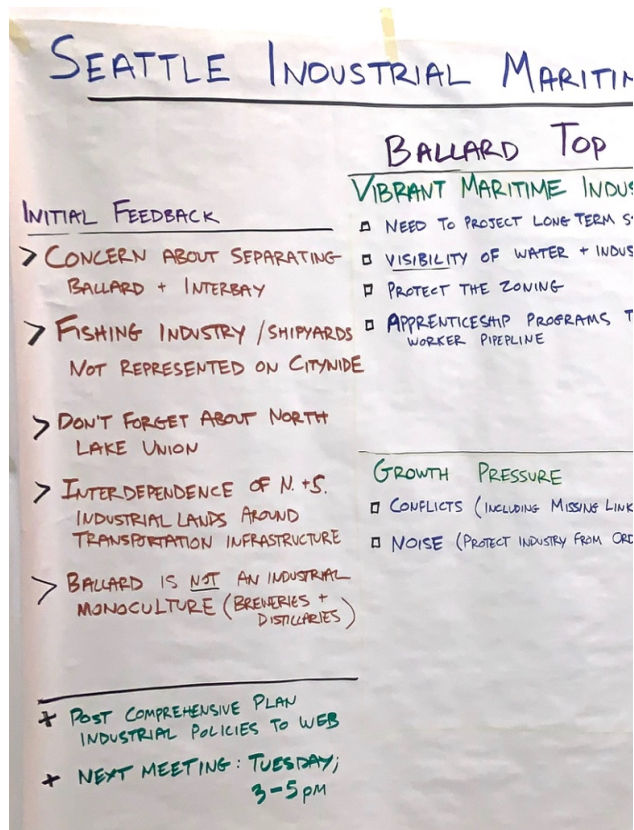 SEATTLE INDUSTRIAL MARITIM
INITIAL FEEDBACK
> CONCERN ABOUT SEPARATING
BALLARD + INTERBAY
> FISHING INDUSTRY / SHIPYARDS
NOT REPRESENTED ON CITYWIDE
> DON'T FORGET ABOUT NORTH
LAKE UNION
> INTERDEPENDENCE OF N. + S.
INDUSTRIAL LANDS AROUND
TRANSPORTATION INFRASTRUCTURE
> BALLARD IS NOT AN INDUSTRIAL
MONOCULTURE (BREWERIES +
DISTILLARIES)
+ POST COMPREHENSIVE PLAN
INDUSTRIAL POLICIES TO WEB
+ NEXT MEETING: TUESDAY;
3-5 PM
BALLARD TOP
VIBRANT MARITIME INDUS
NEED TO PROJECT LONG TERM S
VISIBILITY OF WATER + INDUS
PROTECT THE ZONING
APPRENTICESHIP PROGRAMS T
WORKER PIPEPLINE
GROWTH PRESSURE
CONFLICTS (INCLUDING MISSING LINK
NOISE (PROTECT INDUSTRY FROM ORD